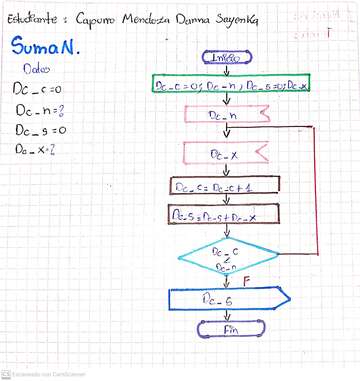 Estudiante: Capurro Mendoza Danna Sayenka
Suma N.
Datos
Dc_c=0
Dc_n=?
Dc_s=0
Dc_x=?
Inicio
Dc_c=0; Dc_n; Dc_s=0; Dc_x
Dc_n
Dc_x
Dc_c=Dc_c+1
Dc_s=Dc_s+Dc_x
Dc_c
Dc_n
F
Dc_s
Fin
CS Escaneado con CamScanner